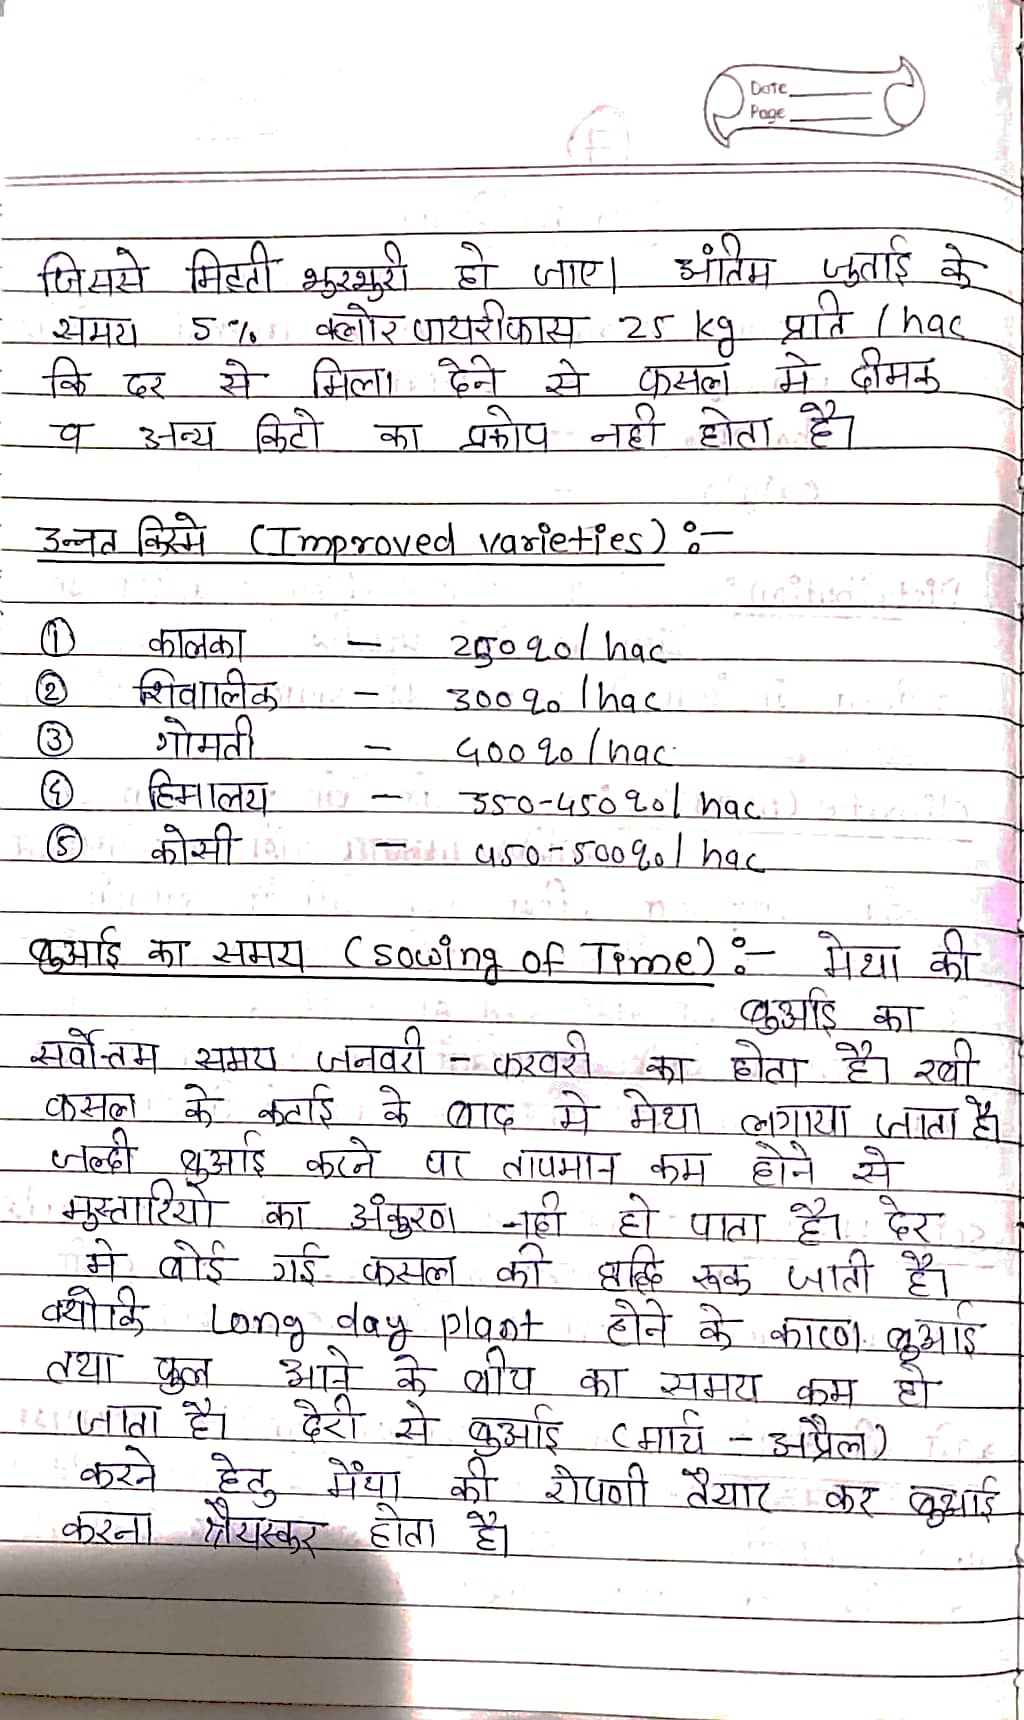 Date
Page
जिससे मिट्टी भुरभुरी हो जाए। अंतिम जुताई के
समय 5% क्लोर पायरीफास 25 kg प्रति / hac
कि दर से मिला देने से फसल मे दीमक
व अन्य किटो का प्रकोप नही होता है।
उन्नत किस्मे (Improved varieties) :-
① कालका - 250 q0/ hac
② शिवालीक - 300 q0 / hac
③ गोमती - 400 q0 / hac
④ हिमालय - 350-450 q0/ hac
⑤ कोसी - 450-500 q0/ hac
बुआई का समय (Sowing of Time) :- मेंथा की
बुआई का
सर्वोत्तम समय जनवरी - फरवरी का होता है। रबी
फसल के कटाई के बाद मे मेंथा लगाया जाता है।
जल्दी बुआई करने पर तापमान कम होने से
भुस्तारियो का अंकुरण नही हो पाता है। देर
मे बोई गई फसल की वृद्धि रूक जाती है।
क्योकि Long day plant होने के कारण बुआई
तथा फुल आने के बीच का समय कम हो
जाता है। देरी से बुआई (मार्च - अप्रैल)
करने हेतु मेंथा की रोपणी तैयार कर बुआई
करना श्रैयस्कर होता है।